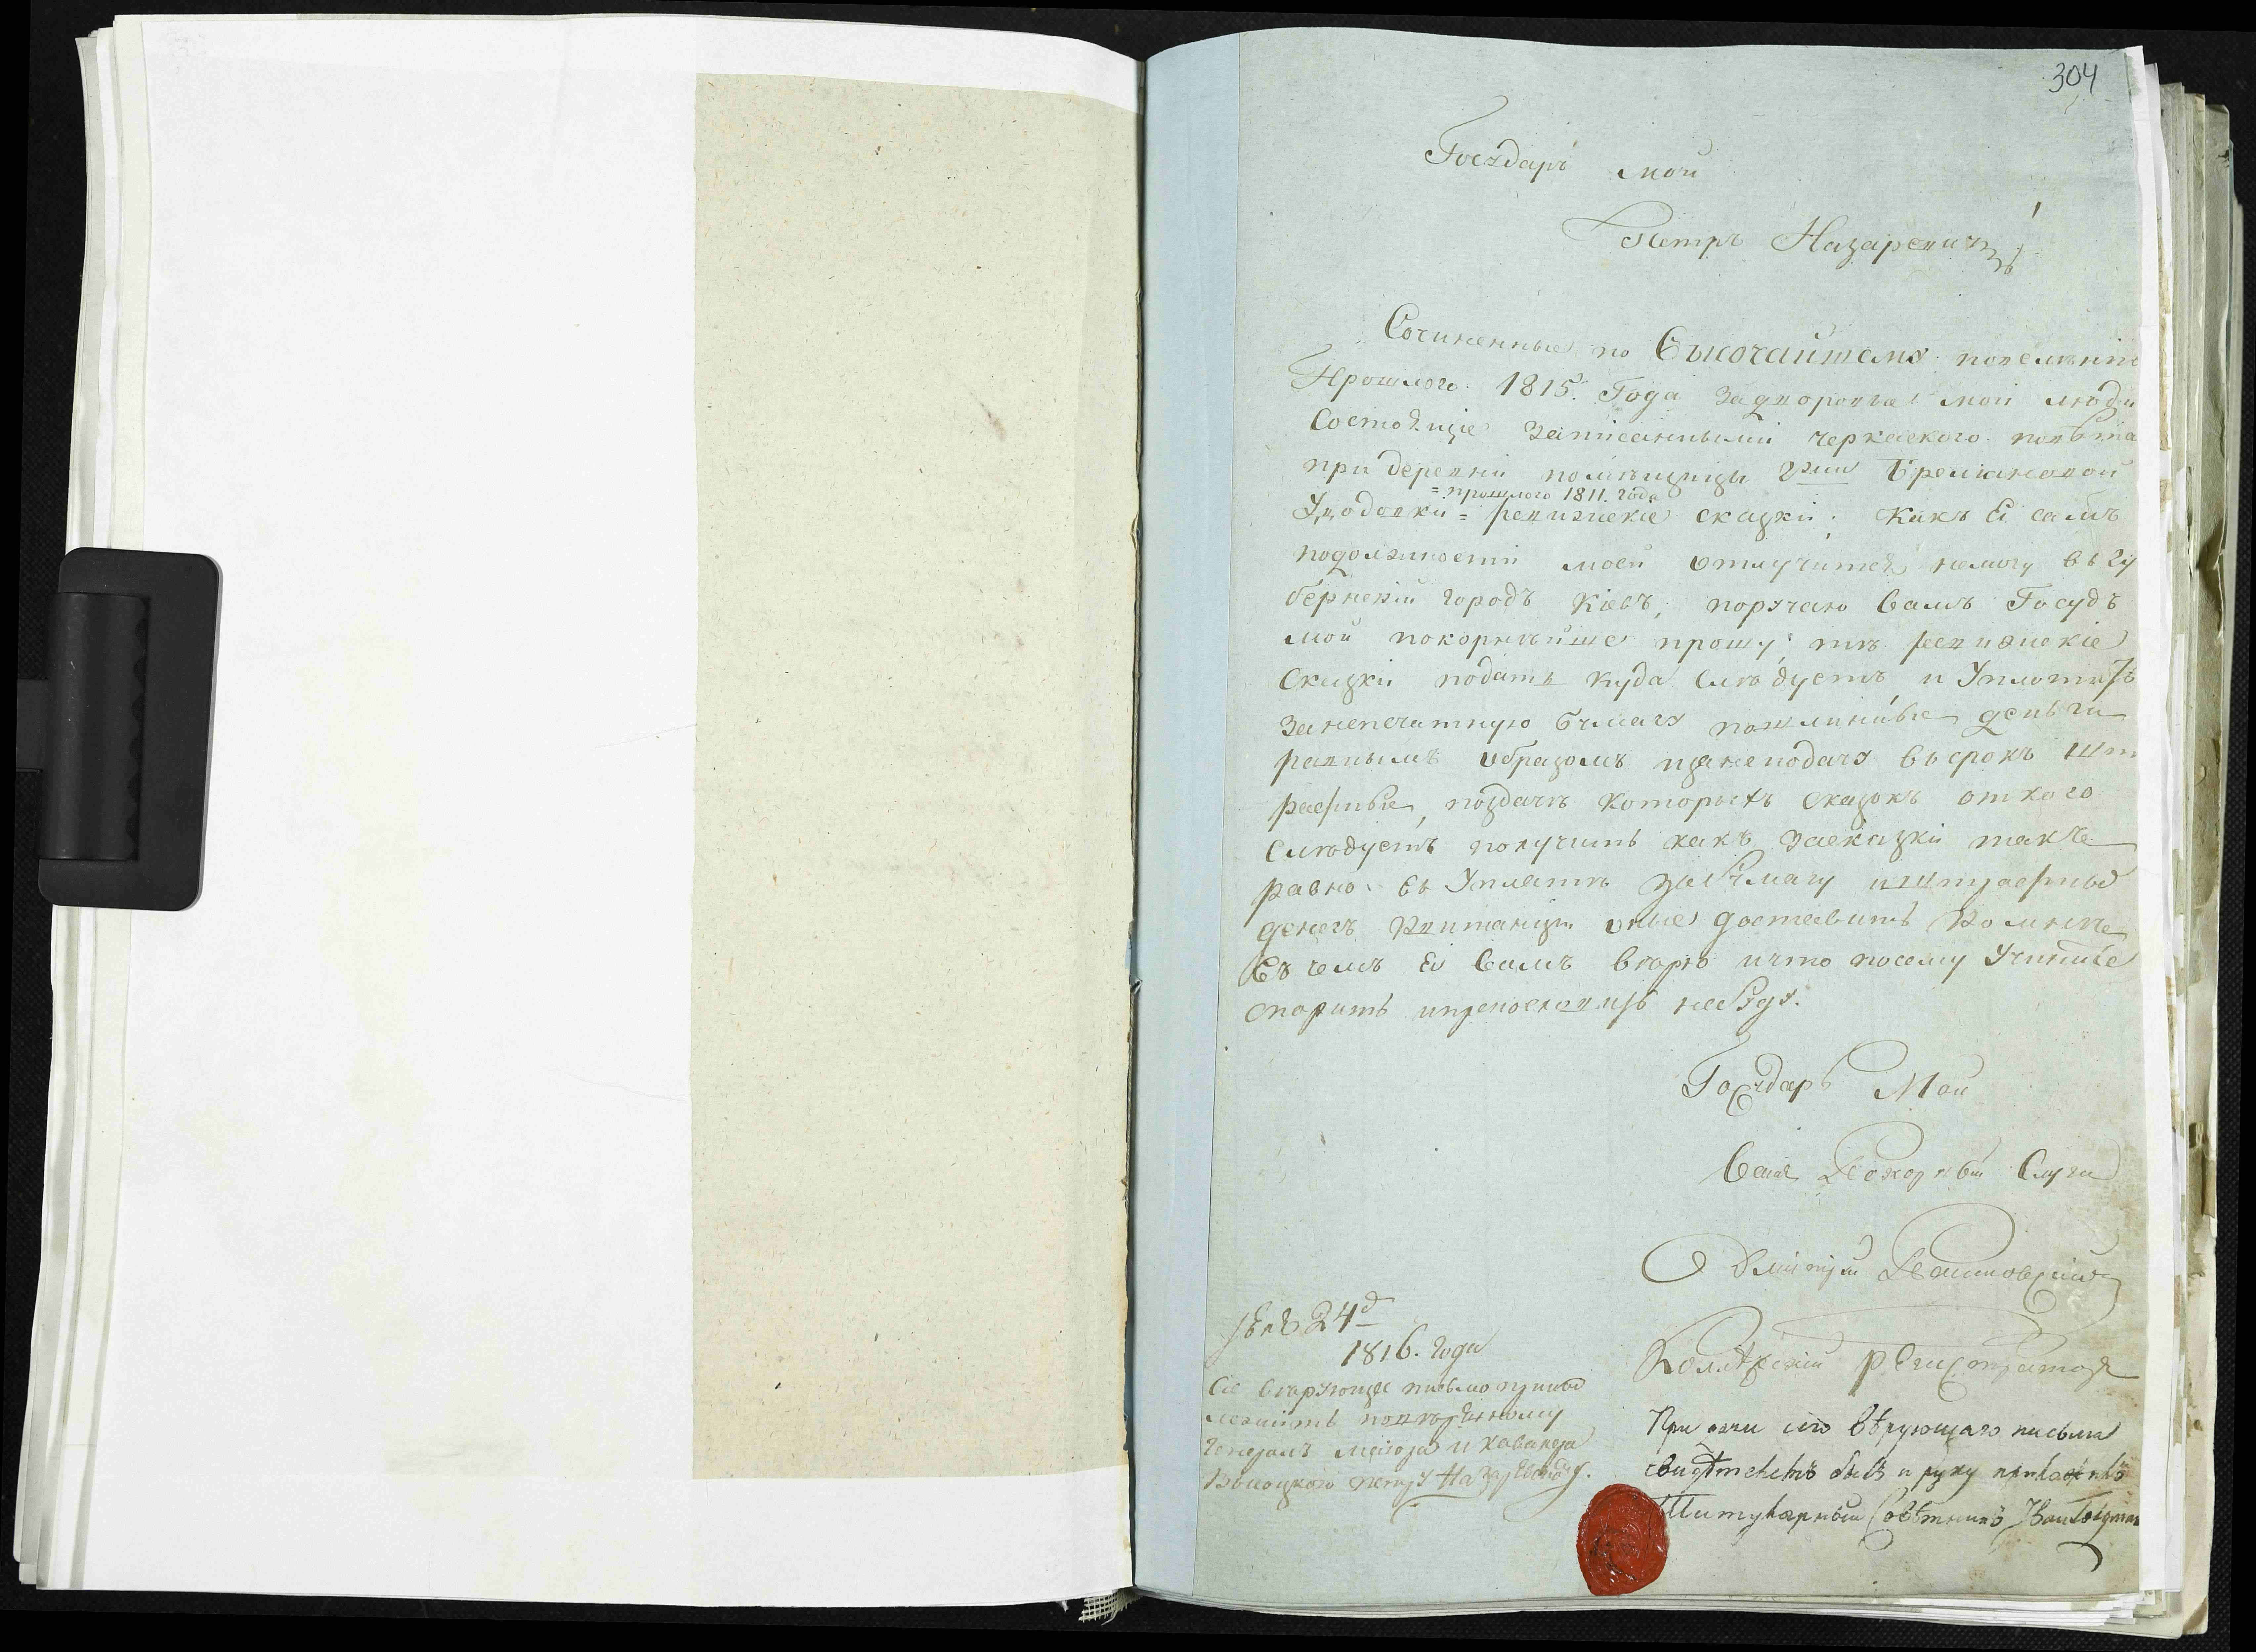 304
Государь мой
Петръ Назаревичъ!
Сочиненные по Высочайшему повелѣнію
Прошлого 1815. Года задворовые мои люди
Состоящіе записанными черкаского повѣта
при деревни помѣщицы Гжи
=прошлого 1811. года
ревизиские сказки: Какъ я самъ
подолжности моей отлучится немогу въ гу
бернский городъ Кіевъ, поручаю вамъ Госудъ
мой покорнѣйше прошу; тѣ ревизские
Сказки подать куда слѣдуетъ, и Уплотить
занепечатную бумагу пошлиные деньги
равнымъ образомъ изанеподачу въсрокъ шт
рафные, поздачѣ которыхъ сказокъ откого
слѣдуетъ получить какъ засказки такъже
равно въ Уплатѣ забумагу иштрафные
денегъ квитанціи оные доставить комнѣ
Въ чемъ я вамъ вѣрю ичто посему Учините
спорить ипрекословить небуду.
Государь Мой
вашъ Покорный Слуга
Дмитрій
Коллежскій регистраторъ
24д
1816. года
Сіе вѣрующее письмо принад
лежитъ повѣренному
Генералъ маіора и кавалера
Высоцкого петру Назаревичу.
При дачи сего вѣрующаго письма
свидѣтелемъ былъ и руку приложилъ
Титулярный Совѣтникъ